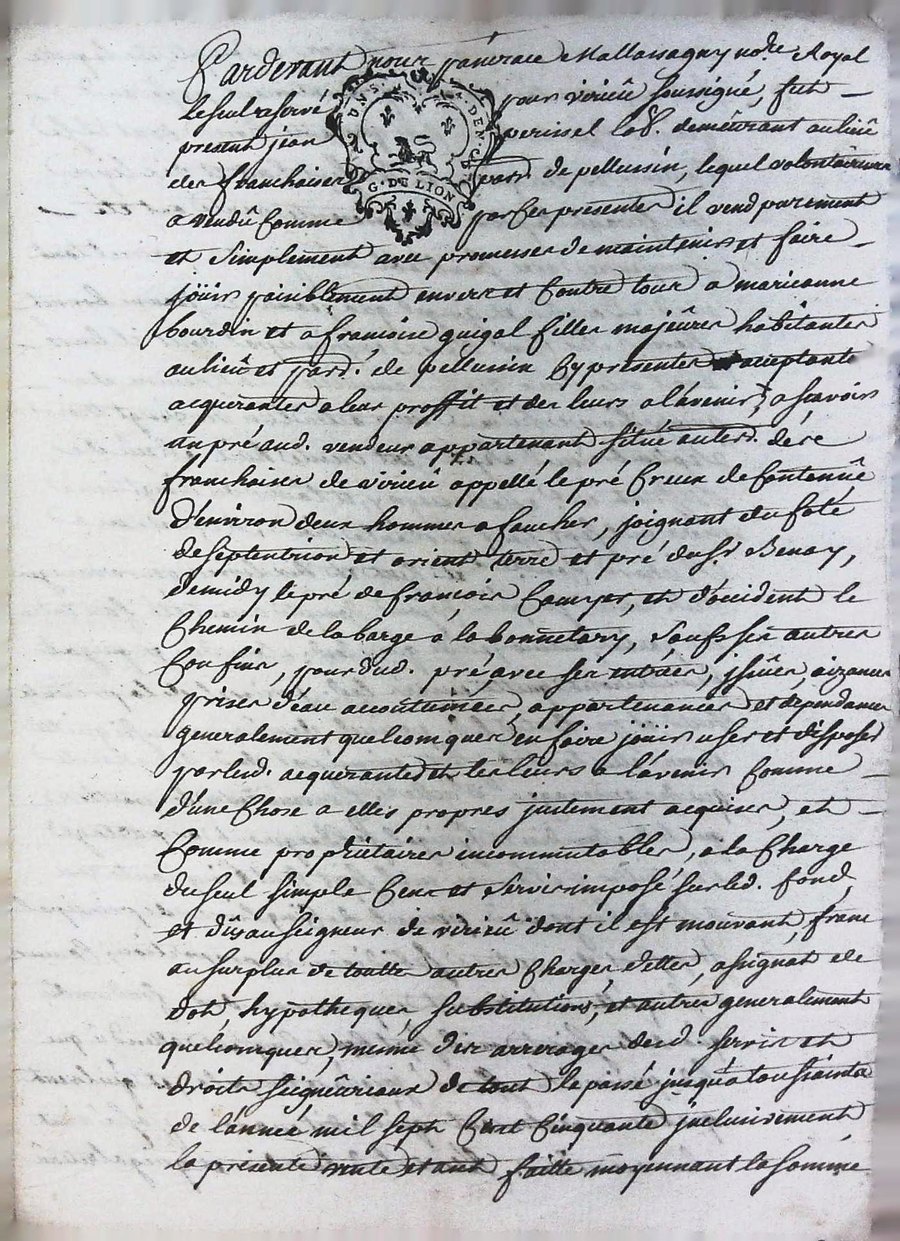 Pardevant nous pancrace Mallassagny no.re Royal
le seul reservé pour virieû soussigné, fut
present jean perissel lab.r demeurant au lieû
des franchises par.sse de pelussin, lequel volontairement
a vendû comme par ces presentes il vend purement
et simplement avec promesses de maintenir et faire
joüir paisiblement envers et contre tous a marianne
bourdin et a francoise guigal filles majeûres habitantes
au lieû et par.sse de pelussin cy presentes et aceptante
acquerantes a leur proffit et des leurs a l'avenir, a scavoir
un pré aud. vendeur appartenant situé au terr. de
franchises de virieû appellé le pré Creux de contenüe
d'environ deux hommes a faucher, joignant du coté
de septentrion et orient terre et pré du s.r Benay,
de midy le pré de francois et d'occident le
Chemin de la barge a la bonnetary, sauf ses autres
Confins, pour dud. pré avec ses entrées, issües, aizances
prises d'eau acoutumées, appartenances et dependances
generalement quelconques en faire joüir user et disposer
par led. acquerantes et les leurs a l'avenir Comme
d'une Chose a elles propres justement acquises, et
Comme proprietaires incommutables, a la Charge
du seul simple Cens et servis imposé sur led. fond
et dû au seigneur de virieû dont il est mouvant, franc
au surplus de toutte autres Charges, dettes, asignat de
dot, hypotheques, substitutions, et autres generalement
quelconques, meme des arrerages desd. servis et
droits seigneûriaux de tout le passé jusqu'a toussaints
de l'année mil sept Cent Cinquante jnclusivement
la presente vente etant faitte moyennant la somme
G. DE LION